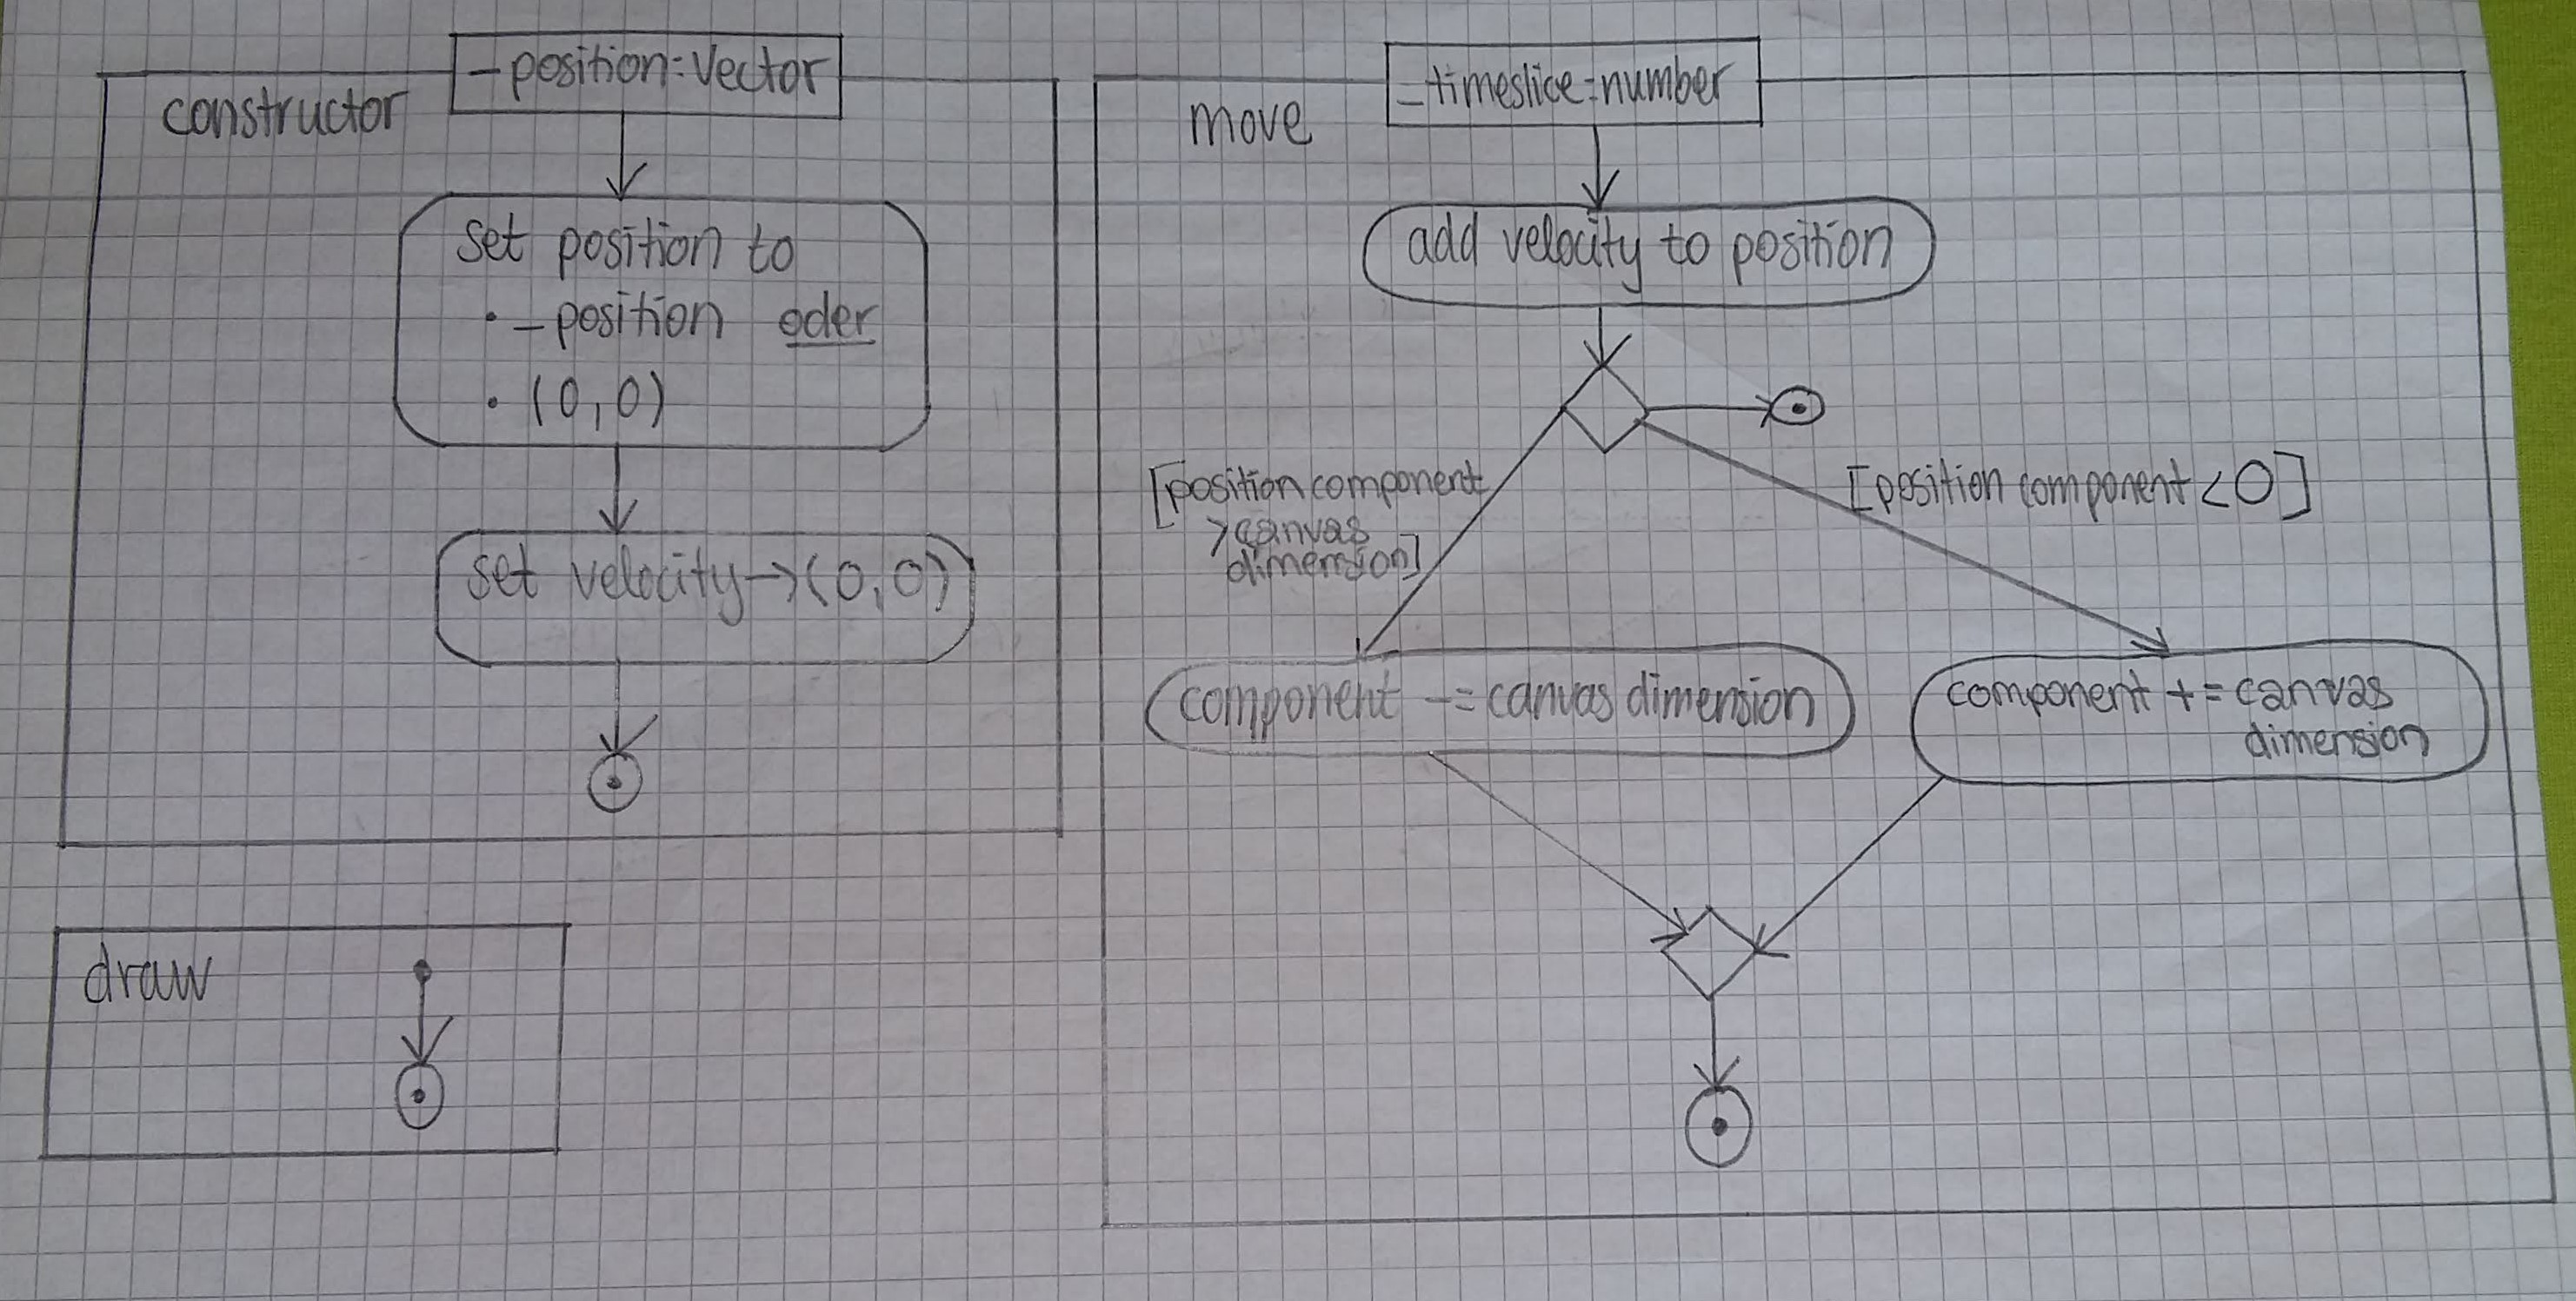 constructor
_position: Vector
set position to
• _position oder
• (0,0)
set velocity→(0,0)
draw
move
_timeslice: number
add velocity to position
[position component
>canvas
dimension]
[position component <0]
component -= canvas dimension
component += canvas
dimension